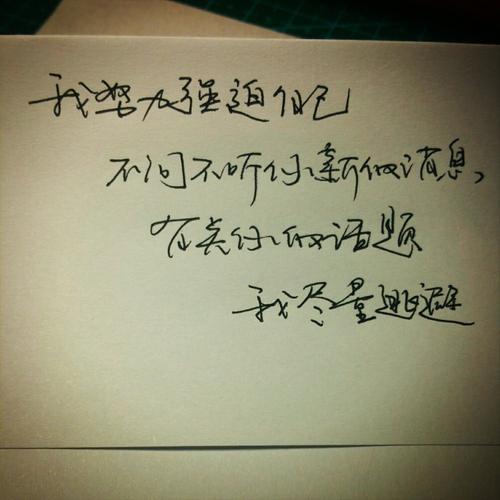 我努力强迫自己
不问不听你新的消息、
有关你的话题
我尽量逃避